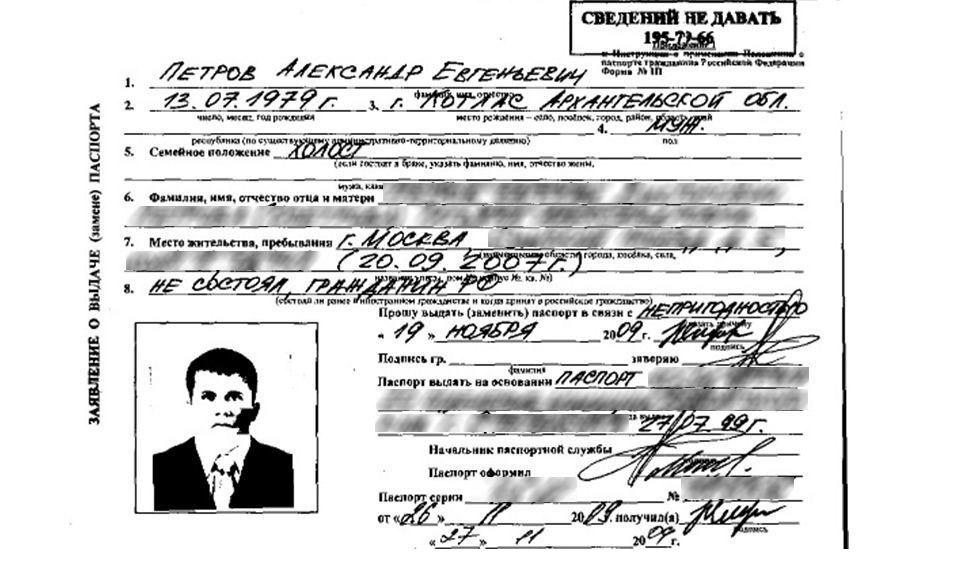 СВЕДЕНИЙ НЕ ДАВАТЬ
195-79-66
к Инструкции о применении Положения о
паспорте гражданина Российской Федерации
Форма № 1П
ЗАЯВЛЕНИЕ О ВЫДАЧЕ (замене) ПАСПОРТА
1. ПЕТРОВ АЛЕКСАНДР ЕВГЕНЬЕВИЧ
фамилия, имя, отчество
2. 13.07.1979 г. 3. г. КОТЛАС АРХАНГЕЛЬСКОЙ ОБЛ.
число, месяц, год рождения место рождения – село, посёлок, город, район, область, край
4. МУЖ.
республика (по существующему административно-территориальному делению) пол
5. Семейное положение ХОЛОСТ
(если состоит в браке, указать фамилию, имя, отчество жены,
мужа, каки
6. Фамилия, имя, отчество отца и матери
7. Место жительства, пребывания г. МОСКВА,
области города, посёлка, села,
(20.09.2007 г.)
№ кв. №)
8. НЕ СОСТОЯЛ, ГРАЖДАНИН РФ
(состоял ли ранее в иностранном гражданстве и когда принят в российское гражданство)
Прошу выдать (заменить) паспорт в связи с НЕПРИГОДНОСТЬЮ
указать причину
« 19 » НОЯБРЯ 2009 г.
подпись
Подпись гр. заверяю
фамилия подпись
Паспорт выдать на основании ПАСПОРТ
27.07.99 г.
Начальник паспортной службы
Паспорт оформил
Паспорт серии №
от « 26 » 11 2009. получил(а)
подпись
« 27 » 11 2009 г.